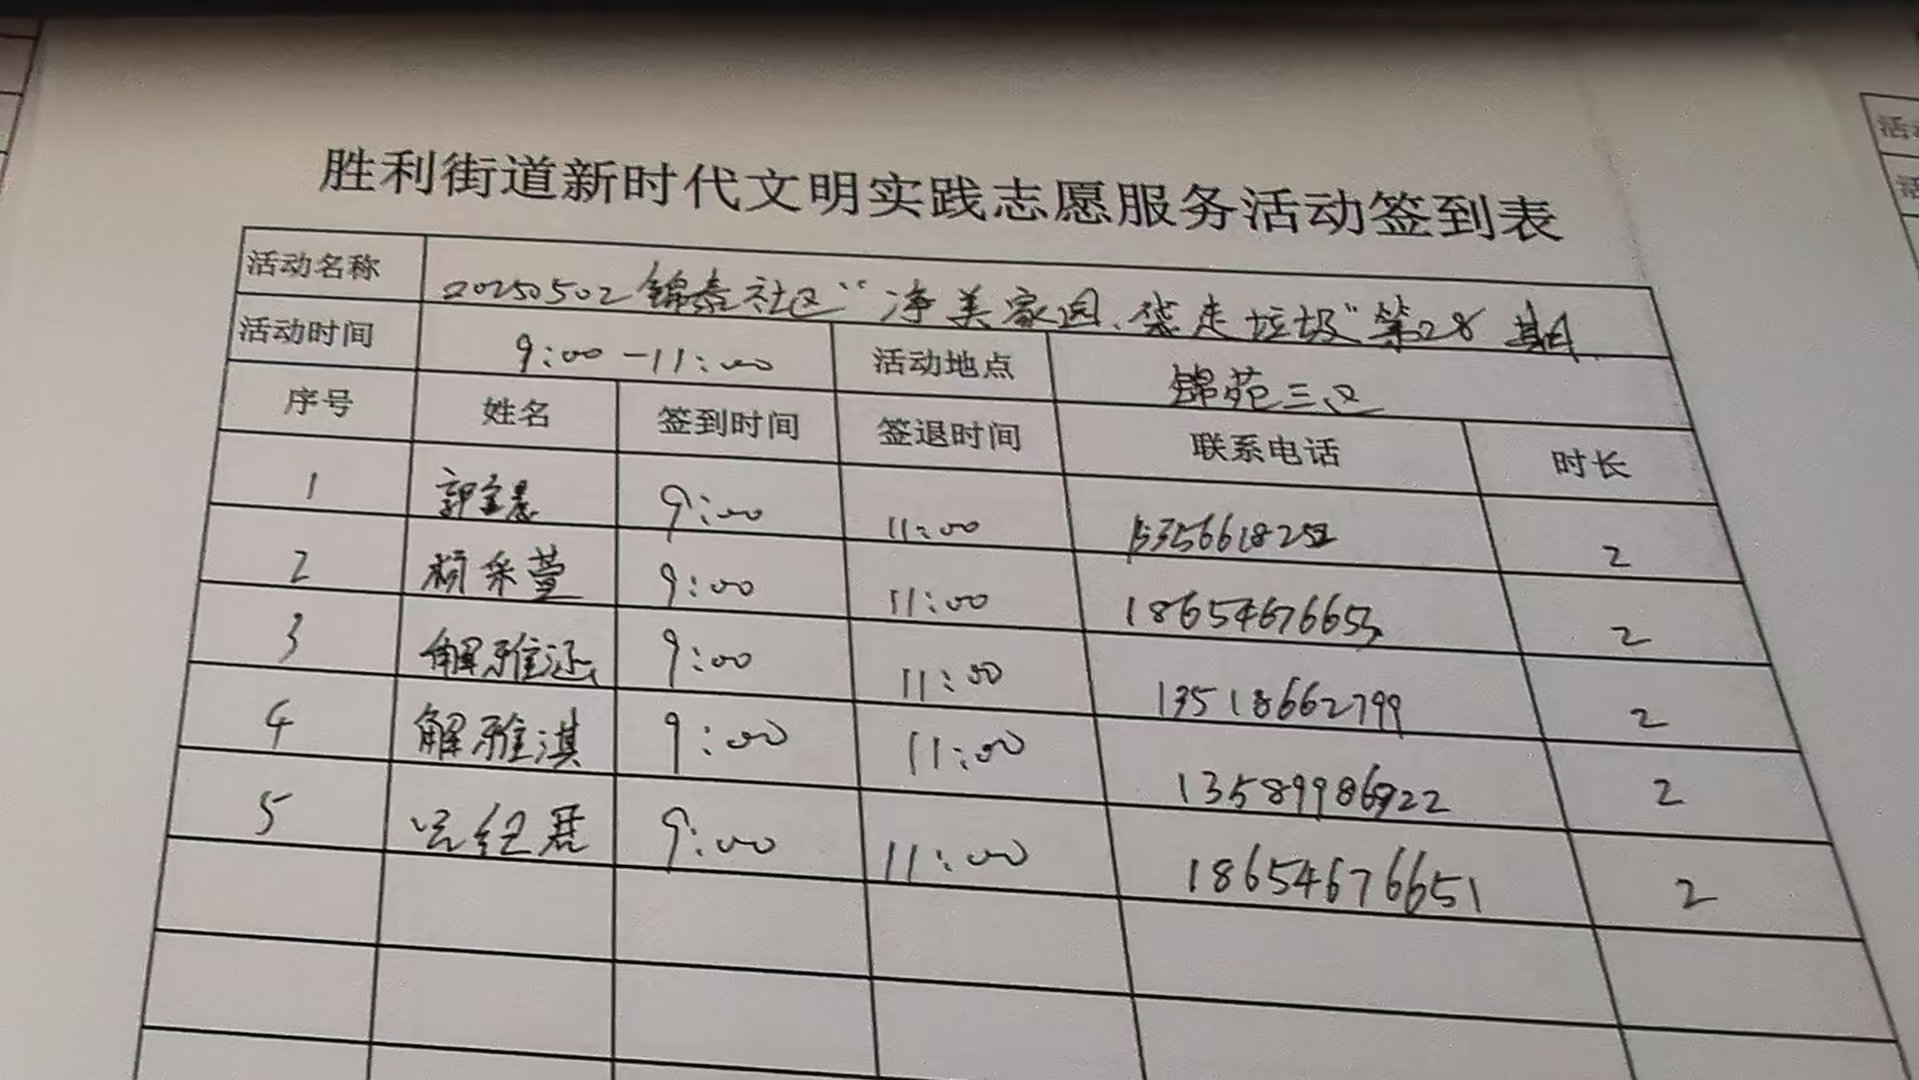 胜利街道新时代文明实践志愿服务活动签到表
活动名称 20250502锦泰社区“净美家园、袋走垃圾”第28期
活动时间 9:00-11:00 活动地点 锦苑三区
序号 姓名 签到时间 签退时间 联系电话 时长
1 9:00 11:00 2
2 采萱 9:00 11:00 18654676653 2
3 解雅涵 9:00 11:00 13518662799 2
4 解雅淇 9:00 11:00 13589986922 2
5 9:00 11:00 18654676651 2
活
活